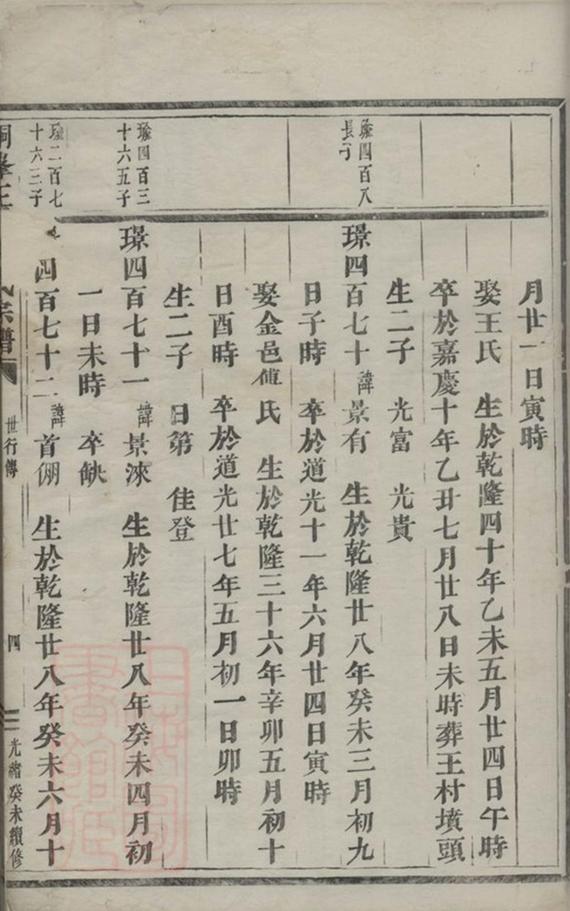 月廿一日寅時
娶王氏 生於乾隆四十年乙未五月廿四日午時
卒於嘉慶十年乙丑七月廿八日未時葬王村墳頭
生二子 光富 光貴
璟四百八
長子
璟四百七十 諱景有 生於乾隆廿八年癸未三月初九
日子時 卒於道光十一年六月廿四日寅時
娶金邑傅氏 生於乾隆三十六年辛卯五月初十
日酉時 卒於道光廿七年五月初一日卯時
生二子 日第 佳登
四百三
十六五子
璟四百七十一 諱景淶 生於乾隆廿八年癸未四月初
一日未時 卒缺
二百七
十六三子
四百七十二 諱首倗 生於乾隆廿八年癸未六月十
宗譜 世行傳 四 光緒癸未續修